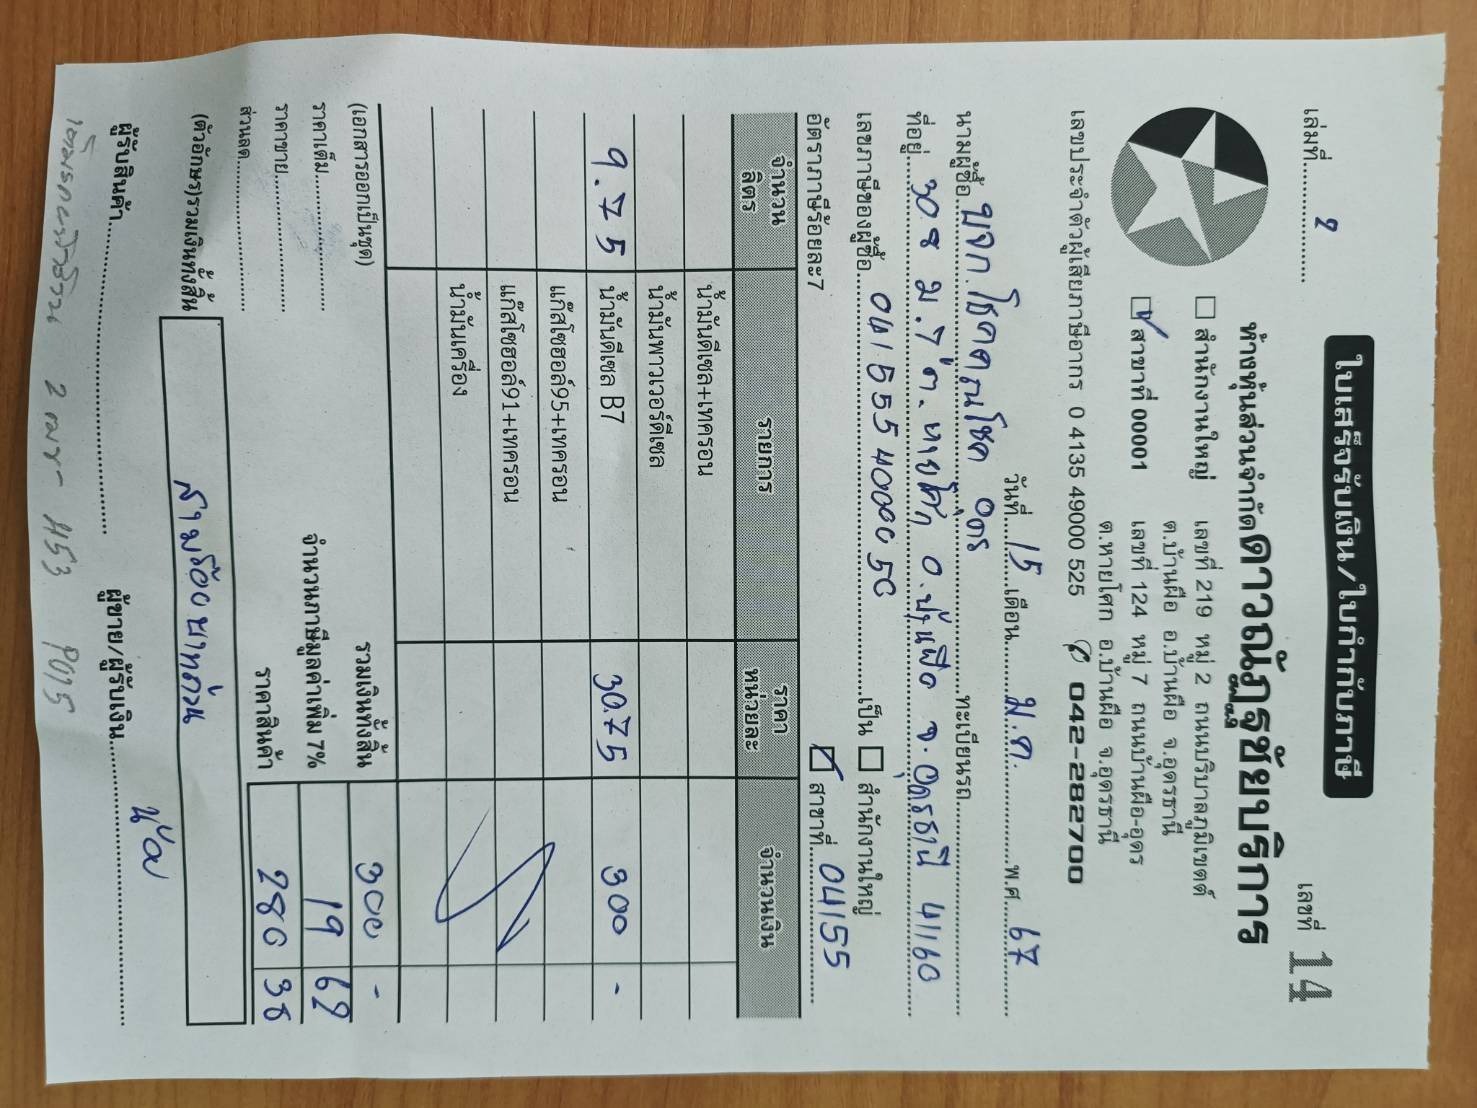 เล่มที่ 2 เลขที่ 14
ใบเสร็จรับเงิน/ใบกำกับภาษี
ห้างหุ้นส่วนจำกัดดาวณัฏฐชัยบริการ
☐ สำนักงานใหญ่ เลขที่ 219 หมู่ 2 ถนนบริบาลภูมิเขตต์
ต.บ้านผือ อ.บ้านผือ จ.อุดรธานี
☑ สาขาที่ 00001 เลขที่ 124 หมู่ 7 ถนนบ้านผือ-อุดร
ต.หายโศก อ.บ้านผือ จ.อุดรธานี
เลขประจำตัวผู้เสียภาษีอากร 0 4135 49000 525 ✆ 042-282700
วันที่ 15 เดือน ม.ค. พ.ศ. 67
นามผู้ซื้อ บจก.โชคคุณโชค อุดร ทะเบียนรถ
ที่อยู่ 308 ม.7 ต.หายโศก อ.บ้านผือ จ.อุดรธานี 41160
เลขภาษีของผู้ซื้อ 0415554000050 เป็น ☐ สำนักงานใหญ่
อัตราภาษีร้อยละ 7 ☑ สาขาที่ 04155
จำนวนลิตร รายการ ราคาหน่วยละ จำนวนเงิน
น้ำมันดีเซล+เทครอน
น้ำมันพาวเวอร์ดีเซล
9.75 น้ำมันดีเซล B7 3075 300 -
แก๊สโซฮอล์95+เทครอน
แก๊สโซฮอล์91+เทครอน
น้ำมันเครื่อง
(เอกสารออกเป็นชุด) รวมเงินทั้งสิ้น 300 -
ราคาเต็ม จำนวนภาษีมูลค่าเพิ่ม 7% 19 62
ราคาขาย ราคาสินค้า 280 38
ส่วนลด
(ตัวอักษร)รวมเงินทั้งสิ้น สามร้อยบาทถ้วน
ผู้รับสินค้า ผู้ขาย/ผู้รับเงิน
453 POS